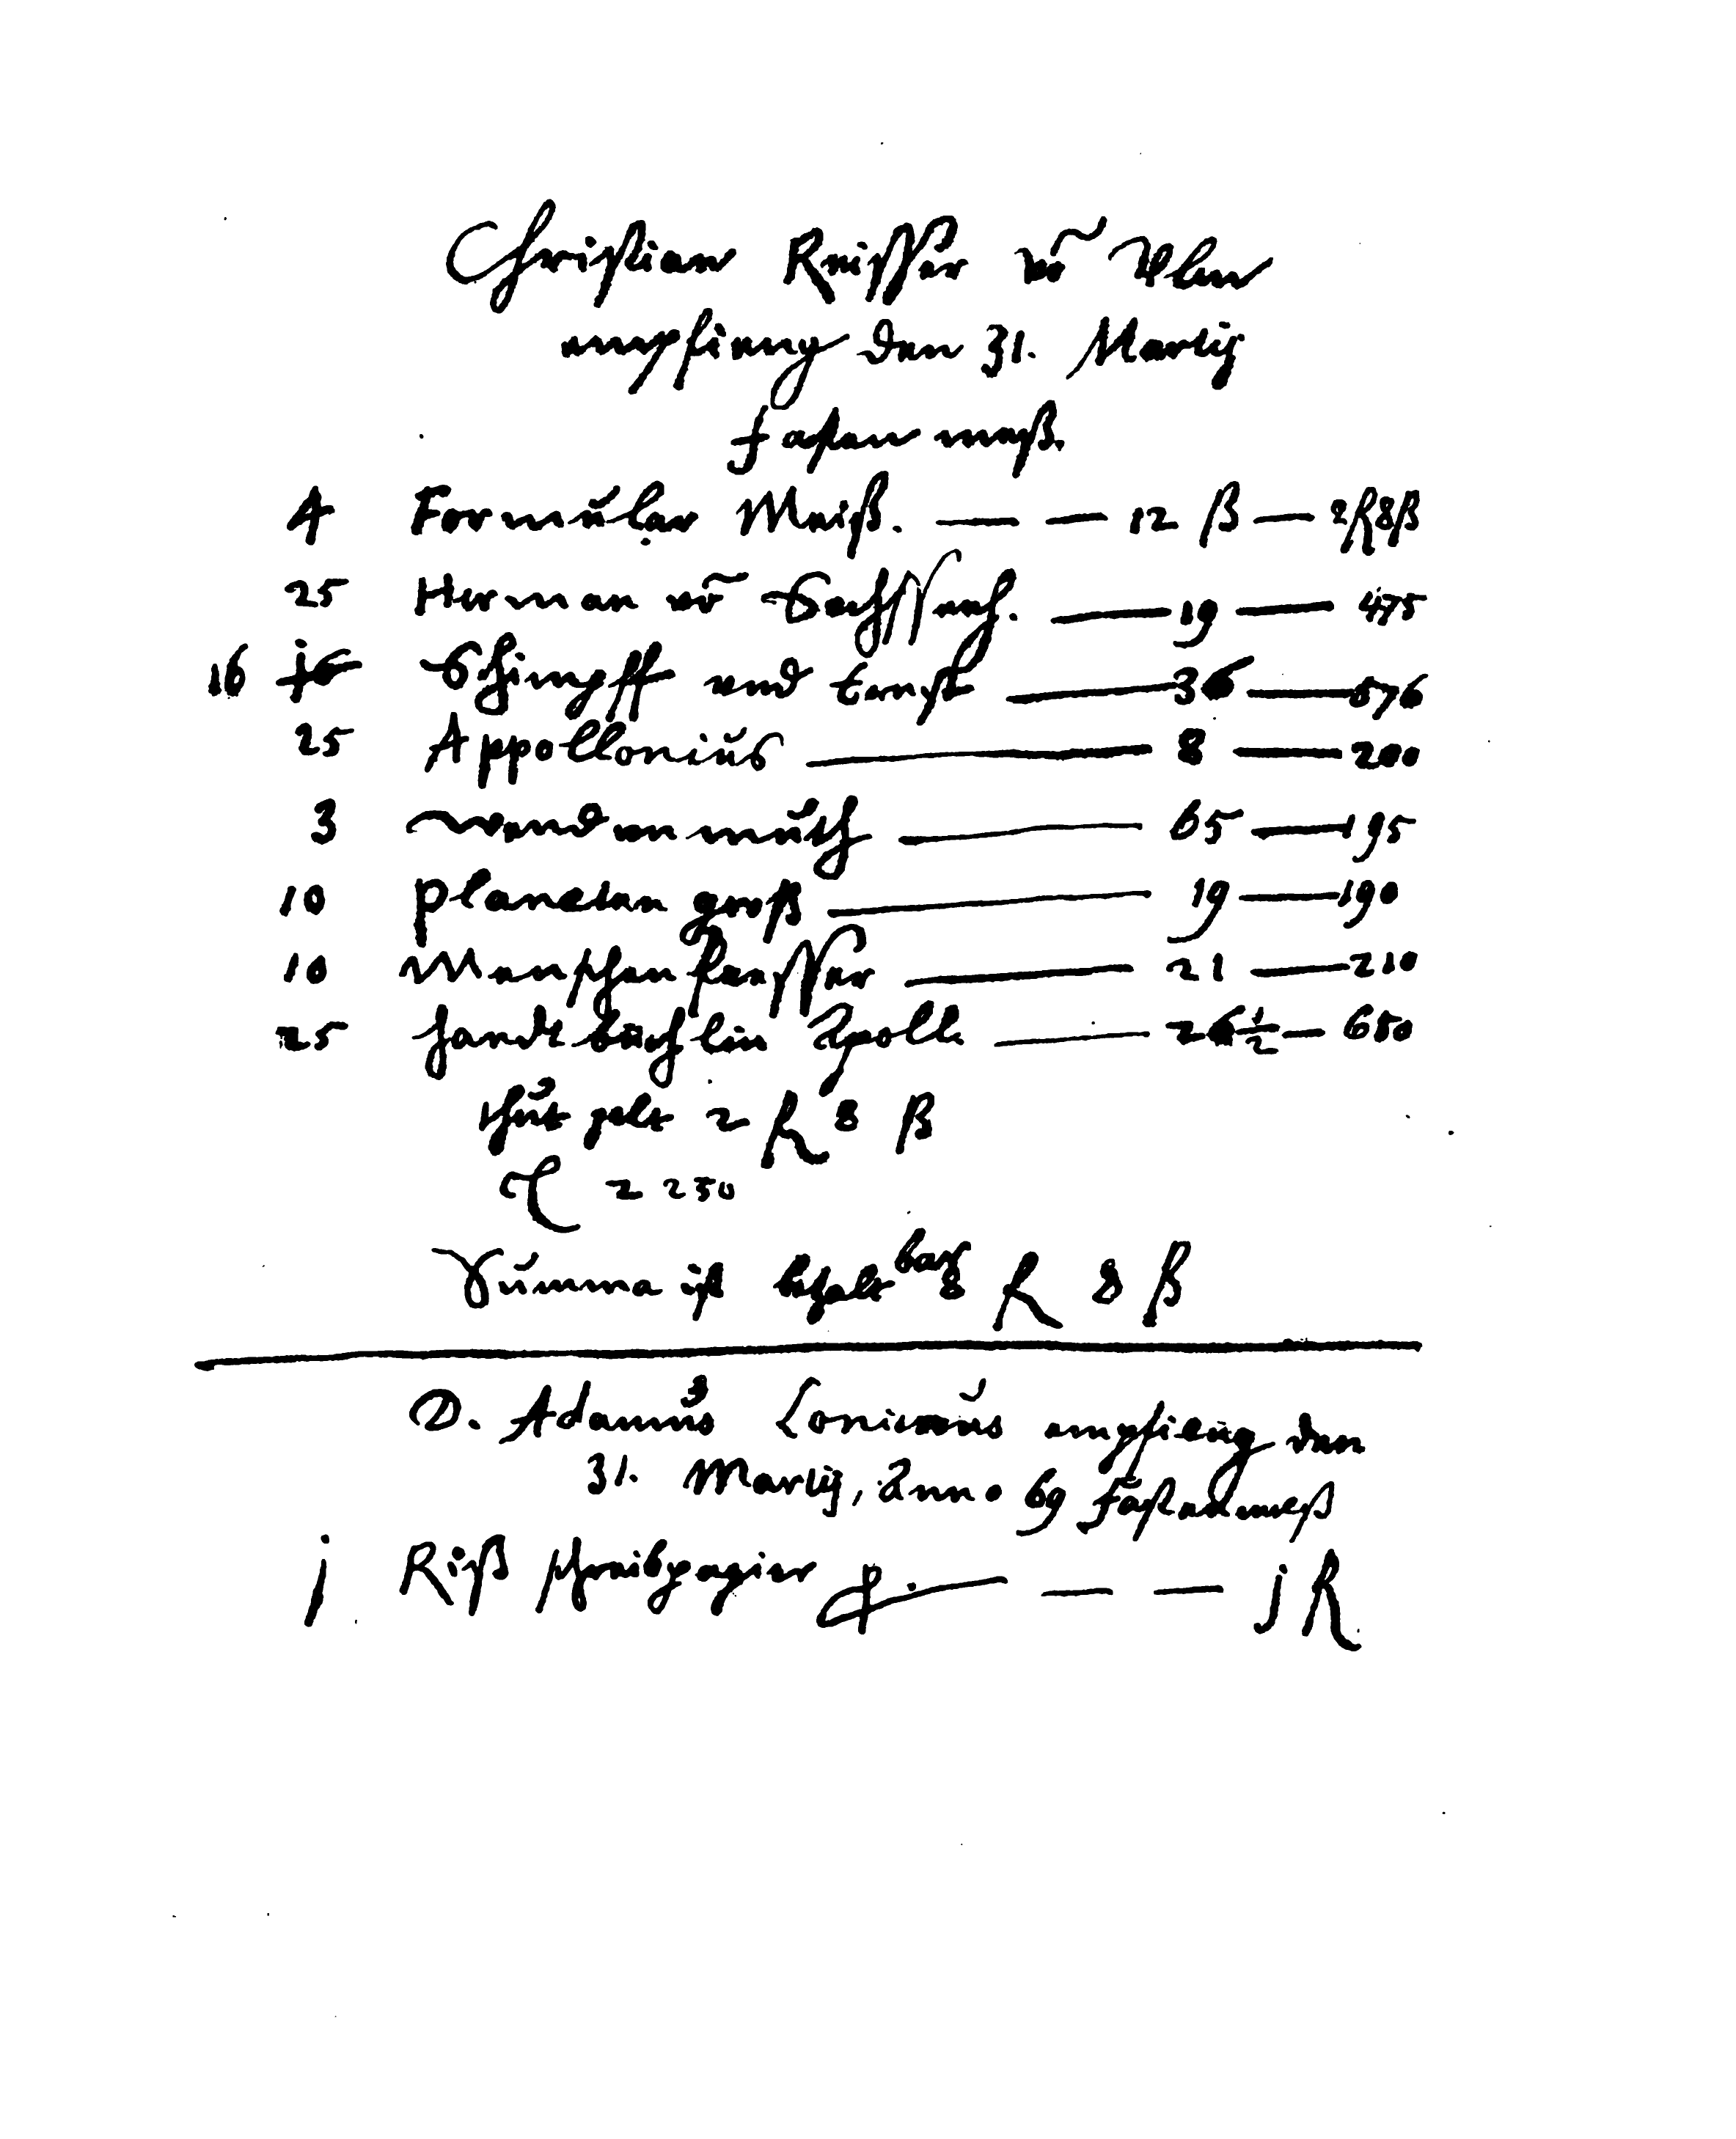 Christian Reisser vō Ulm
empfieng den 31. Martij
fasten meß.
4 Formular Meiß. — — 12 ß — 2 R 8 ß
25 Herman vō Sachssenh. — 19 — 475
16 Schimpff vnd Ernst — 36 — 576
25 Appollonius — 8 — 200
3 Wendenmuth — 65 — 195
10 Planeten groß — 19 — 190
10 Menschen fresser — 21 — 210
25 Handtbüchlin Apolli — 26 ½ — 650
thut gelt 2 R 8 ß
2250
Summa ist bezalt bar 8 R 8 ß
D. Adamus Lonicerus empfieng den
31. Martij, Anno 69 Fastenmeß
j Riß schreibpapier — — j R